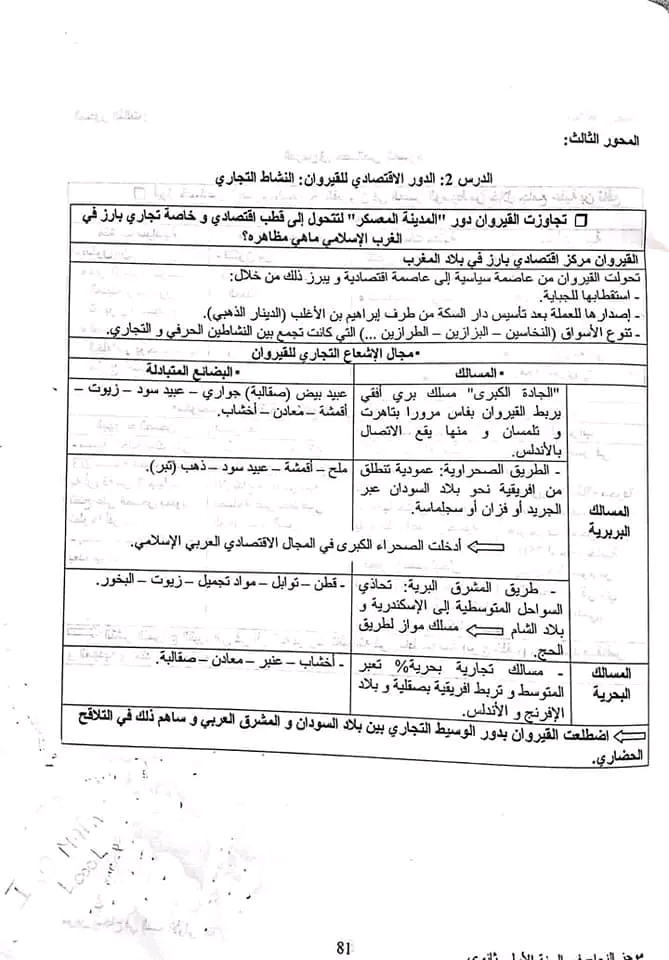 المحور الثالث:
الدرس 2: الدور الاقتصادي للقيروان: النشاط التجاري
❒ تجاوزت القيروان دور "المدينة المعسكر" لتتحول إلى قطب اقتصادي و خاصة تجاري بارز في
الغرب الإسلامي ماهي مظاهره؟
القيروان مركز اقتصادي بارز في بلاد المغرب
تحولت القيروان من عاصمة سياسية إلى عاصمة اقتصادية و يبرز ذلك من خلال:
- استقطابها للجباية.
- إصدارها للعملة بعد تأسيس دار السكة من طرف إبراهيم بن الأغلب (الدينار الذهبي).
- تنوع الأسواق (النخاسين – البزازين – الطرازين ...) التي كانت تجمع بين النشاطين الحرفي و التجاري.
•مجال الإشعاع التجاري للقيروان
▪ المسالك
▪ البضائع المتبادلة
المسالك
البربرية
"الجادة الكبرى" مسلك بري أفقي
يربط القيروان بفاس مرورا بتاهرت
و تلمسان و منها يقع الاتصال
بالأندلس.
عبيد بيض (صقالبة) جواري – عبيد سود – زيوت –
أقمشة – معادن – أخشاب.
- الطريق الصحراوية: عمودية تنطلق
من إفريقية نحو بلاد السودان عبر
الجريد أو فزان أو سجلماسة.
ملح – أقمشة – عبيد سود – ذهب (تبر).
⇐ أدخلت الصحراء الكبرى في المجال الاقتصادي العربي الإسلامي.
- طريق المشرق البرية: تحاذي
السواحل المتوسطية إلى الإسكندرية و
بلاد الشام ⇐ مسلك مواز لطريق
الحج.
- قطن – توابل – مواد تجميل – زيوت – البخور.
المسالك
البحرية
- مسالك تجارية بحرية% تعبر
المتوسط و تربط افريقية بصقلية و بلاد
الإفرنج و الأندلس.
- أخشاب – عنبر – معادن – صقالبة.
⇐ اضطلعت القيروان بدور الوسيط التجاري بين بلاد السودان و المشرق العربي و ساهم ذلك في التلاقح
الحضاري.
81